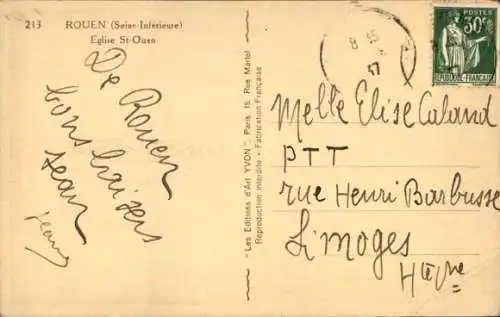 213 ROUEN (Seine-Inférieure)
Eglise St-Ouen
De Rouen
bons baisers
Jean
Jeanne
"Les Editions d'Art YVON", Paris, 15, Rue Martel
Reproduction interdite - Fabrication Française
8 55
37
POSTES
30c
REPUBLIQUE FRANÇAISE
Melle Elise Caland
PTT
rue Henri Barbusse
Limoges
Hte Vne